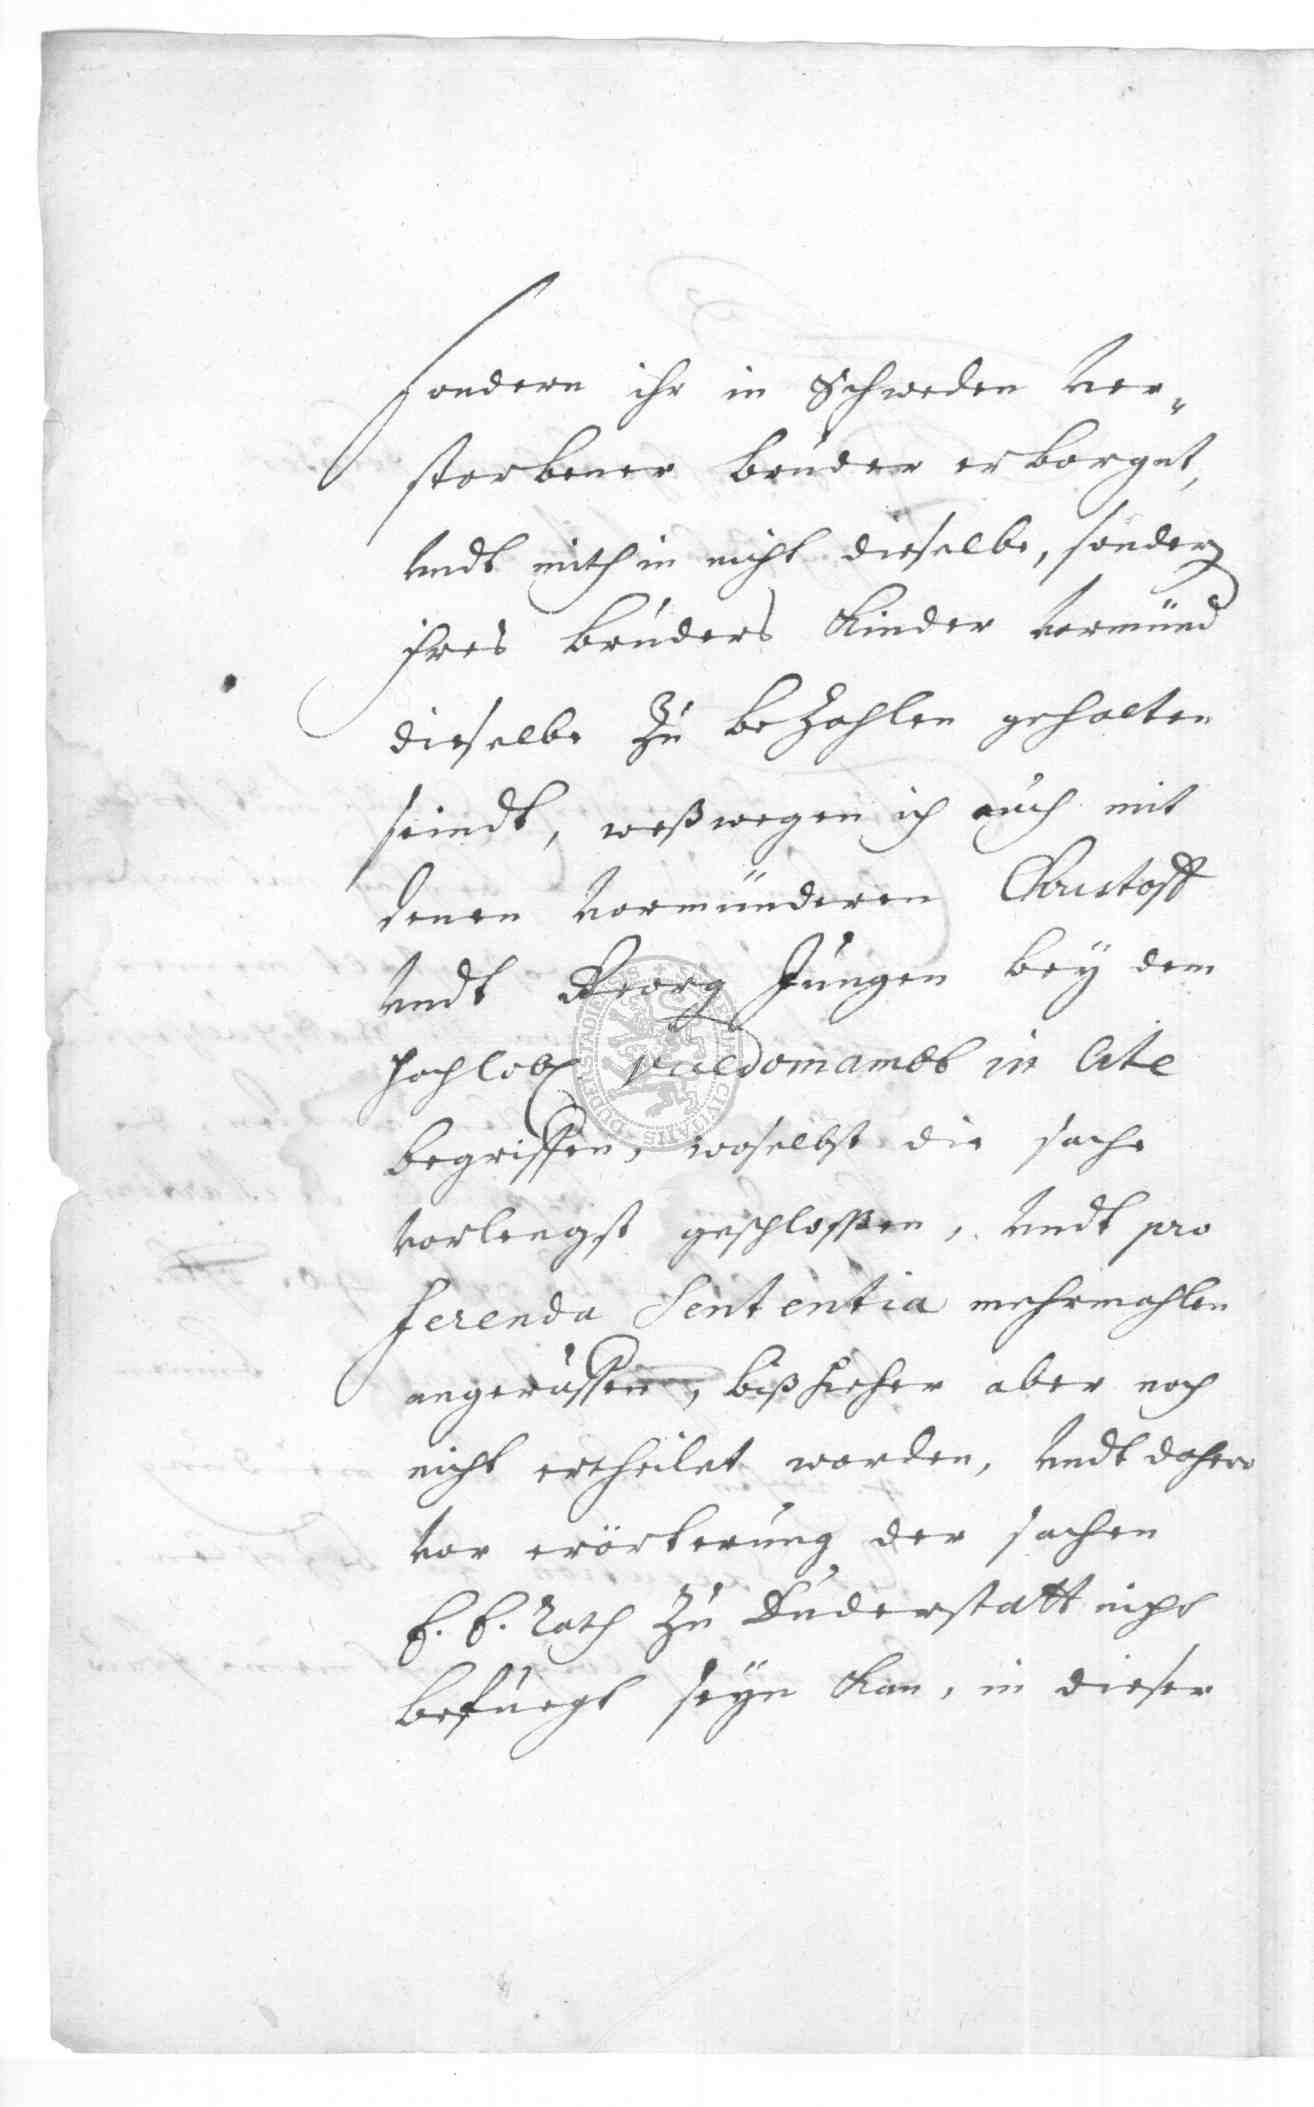 sondern ihr in Schweden ver„
storbener bruder erborget,
undt mithin nicht dieselbe, sondern
ihres bruders Kinder vormünd
dieselbe zu bezahlen gehalten
seindt, weßwegen ich auch mit
denen vormünderen Christoff
undt Georg Jungen bey dem
hochlobl. in lite
begriffen, woselbst die sache
vorlengst geschlossen, undt pro
ferenda sententia mehrmahlen
angeruffen, bißhieher aber noch
nicht ertheilet worden, undt dahero
vor erörterung der sachen
E. E. Rath zu Duderstatt nicht
befuegt seyn kan, in dieser
SIGILLUM CIVITATIS DUDERSTADIENSIS